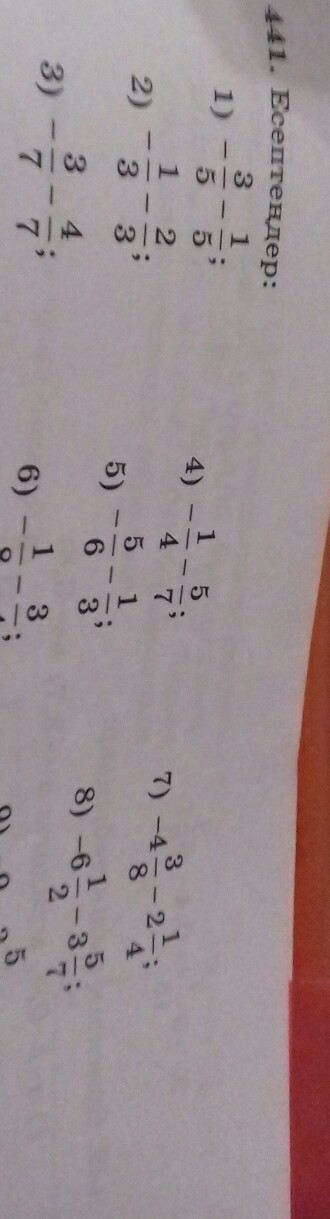 441. Есептеңдер:
1) −3/5 − 1/5;
2) −1/3 − 2/3;
3) −3/7 − 4/7;
4) −1/4 − 5/7;
5) −5/6 − 1/3;
6) −1/ − 3/ ;
7) −4 3/8 − 2 1/4;
8) −6 1/2 − 3 5/7;